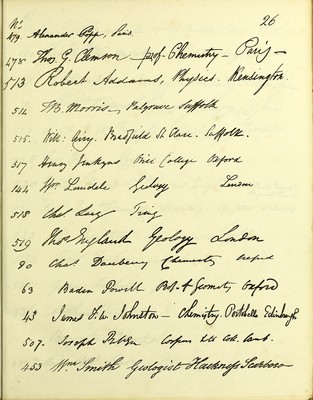 26
No
479. Alexander Popp, Paris.
478 Thos. G. Clemson prof. Chemistry - Paris -
513 Robert Addams, Physics. Kensington.
514 Morris, Palgrave Suffolk
515. Will: Airy. Bradfield St Clare. Suffolk.
517 Henry Jenkyns Oriel College Oxford
144 Wm Lonsdale Geology London
518 Chas Tring
519 Thos England Geology London
80 Chas Daubeny Chemistry Oxford
63 Baden Powell & Geometry Oxford
43 James F. W. Johnston - Chemistry. Portobello Edinburgh
507. Joseph Corpus Coll. Camb.
453 Wm Smith Geologist Hackness Scarboro